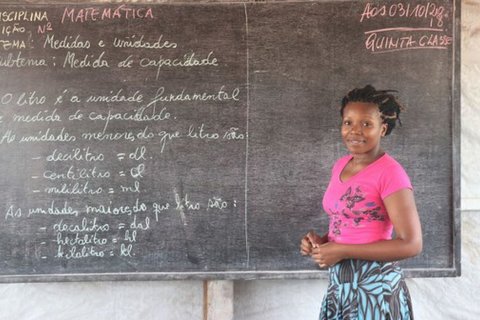 DISCIPLINA MATEMÁTICA
LIÇÃO, Nº
TEMA: Medidas e unidades
Subtema: Medida de capacidade
O litro é a unidade fundamental
e medida de capacidade.
As unidades menores do que litro são:
- decilitro = dl.
- centilitro = cl
- mililitro = ml
As unidades maiores do que litro são:
- decalitro = dal
- hectolitro = hl
- kilolitro = kl
Aos 03/10/2018
QUINTA CLASSE